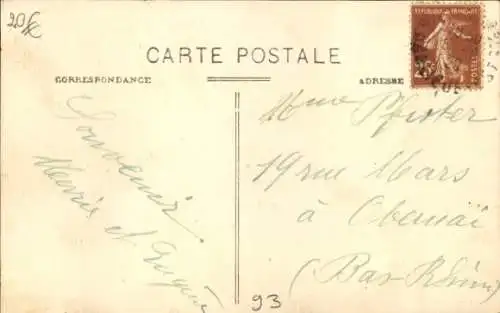 CARTE POSTALE
CORRESPONDANCE
ADRESSE
REPUBLIQUE FRANÇAISE
POSTES
Souvenir
et
Mme Pfister
19 rue Mars
à Obenaï
(Bas-Rhin)
93